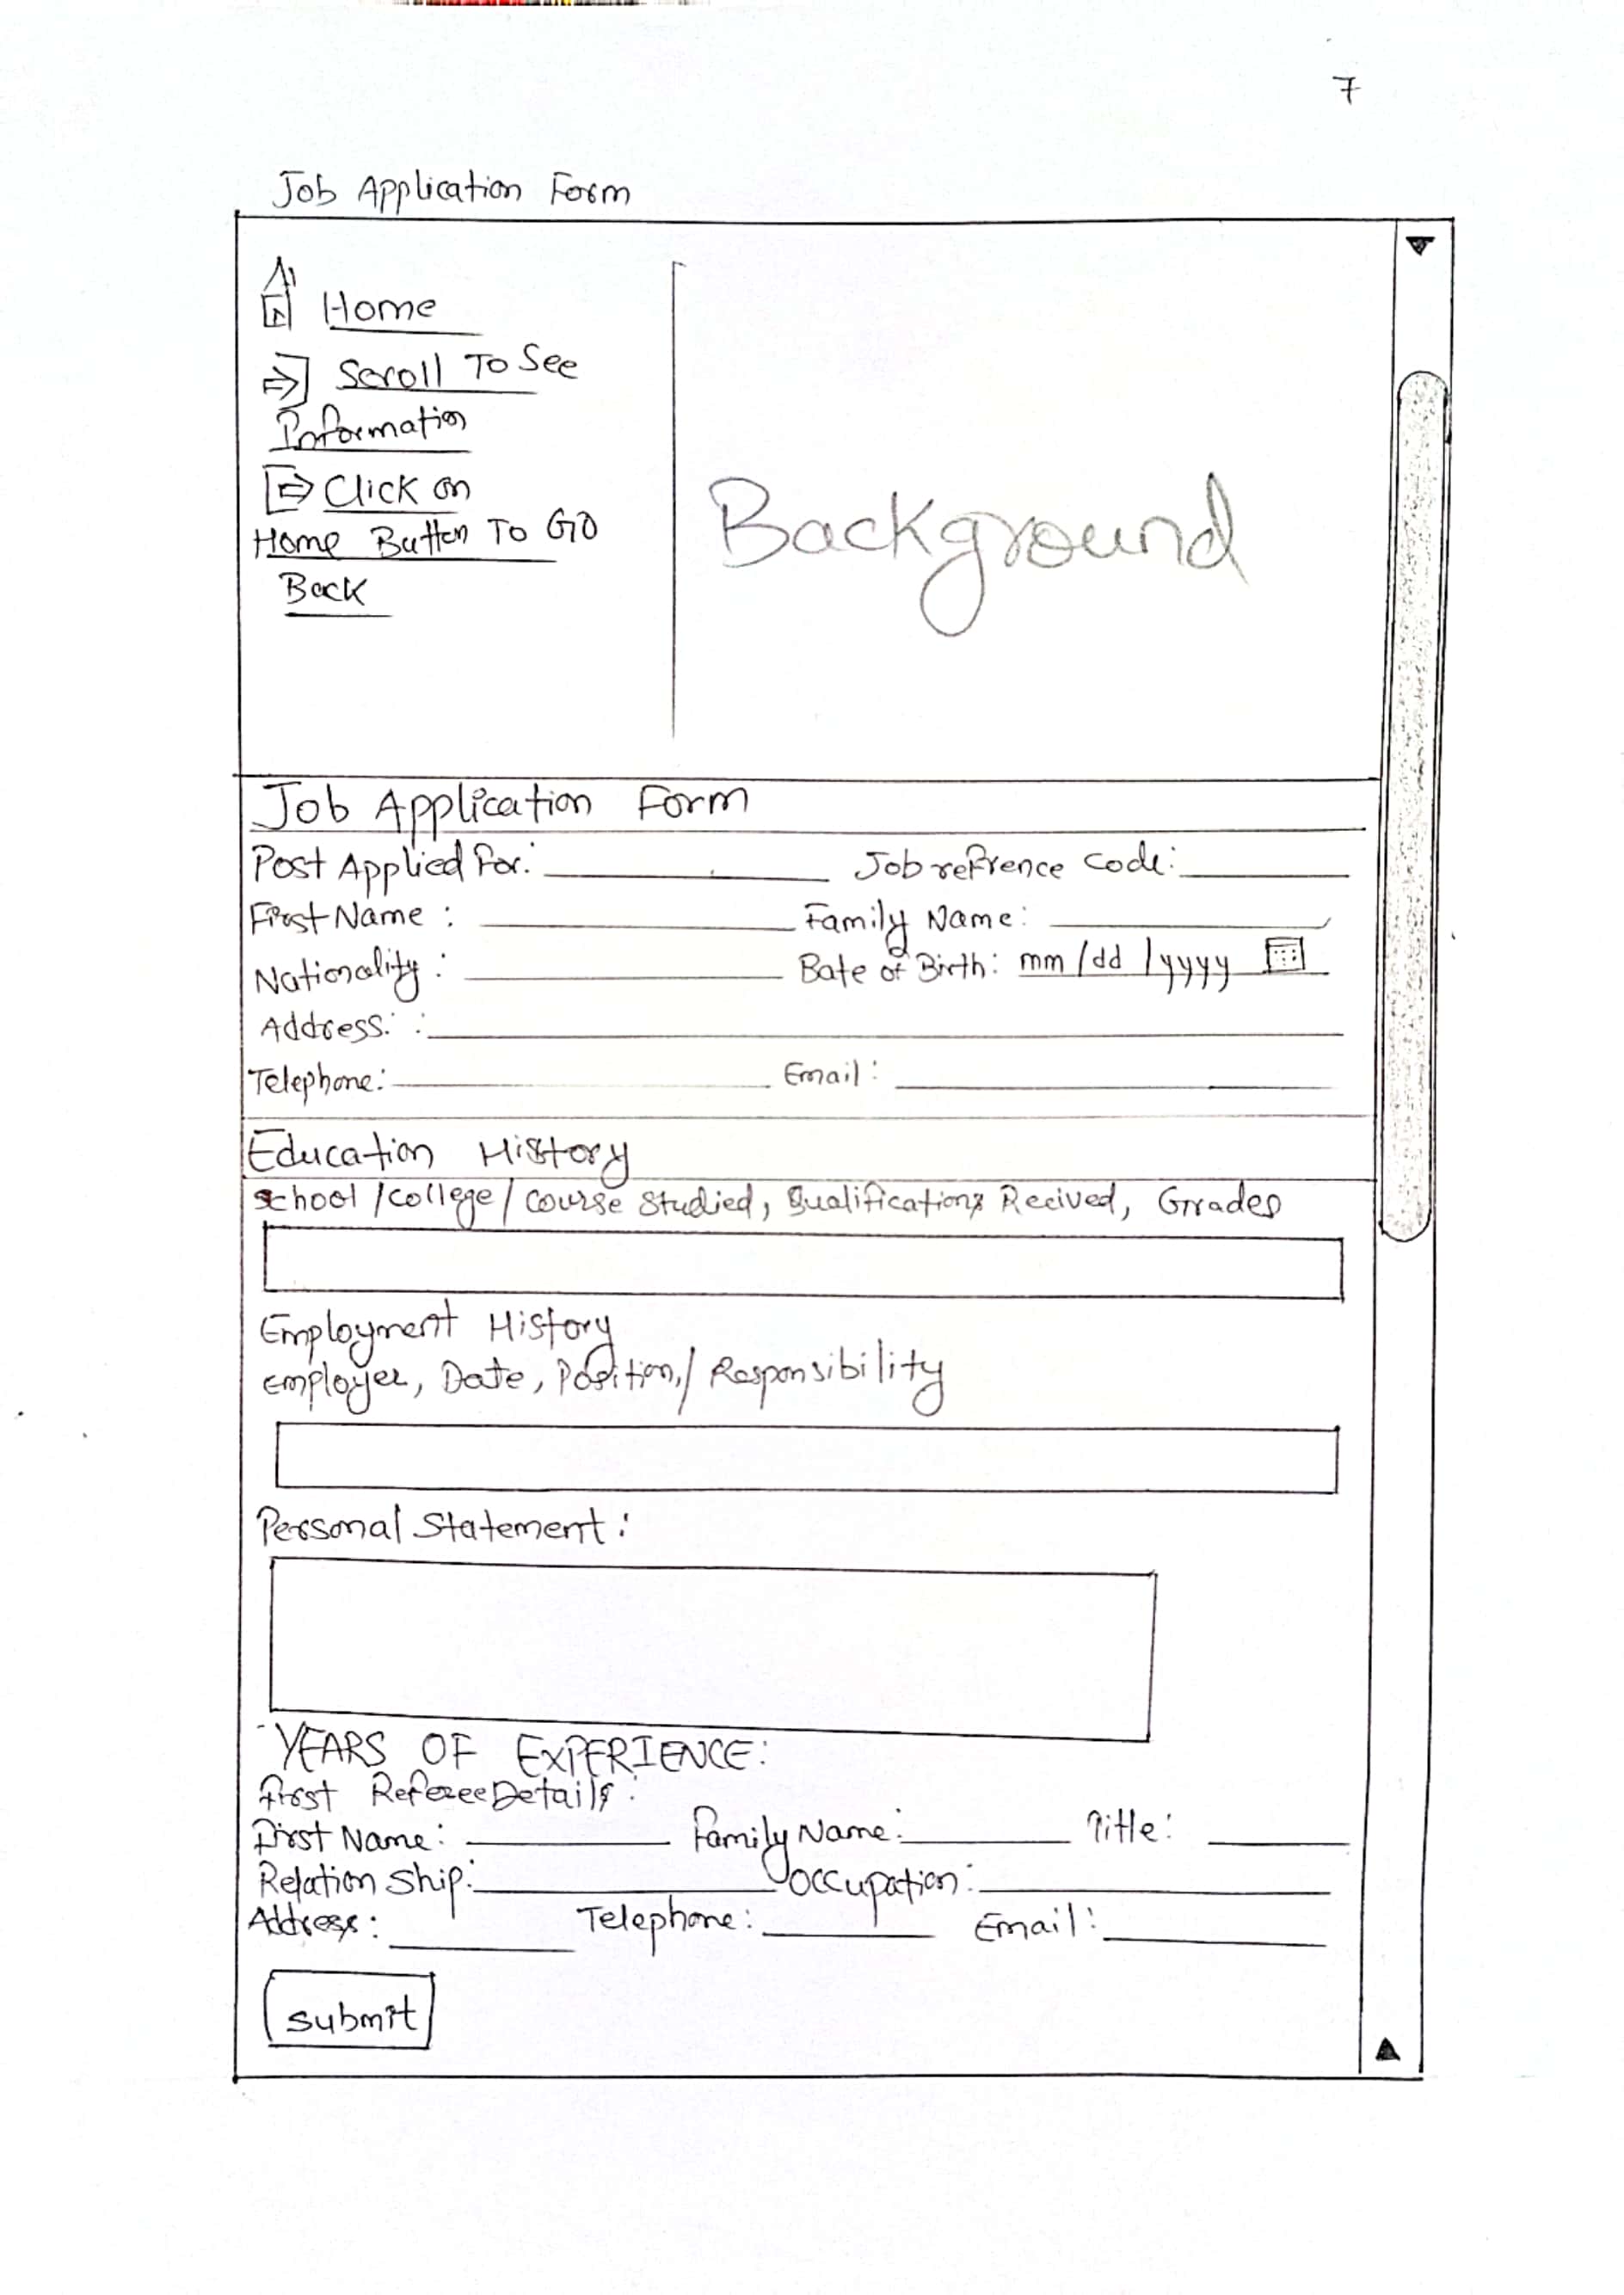 7
Job Application Form
Home
Scroll To See
Information
Click on
Home Button To GO
Back
Background
Job Application Form
Post Applied For: Job refrence code:
First Name : Family Name:
Nationality : Bate of Birth: mm/dd/yyyy
Address: :
Telephone: Email :
Education History
school/college/course studied, Qualifications Recived, Grades
Employment History
Employer, Date, Position,/ Responsibility
Personal Statement:
YEARS OF EXPERIENCE:
First Referee Details:
First Name: Family Name: Title:
Relation Ship: Occupation:
Address: Telephone: Email:
submit